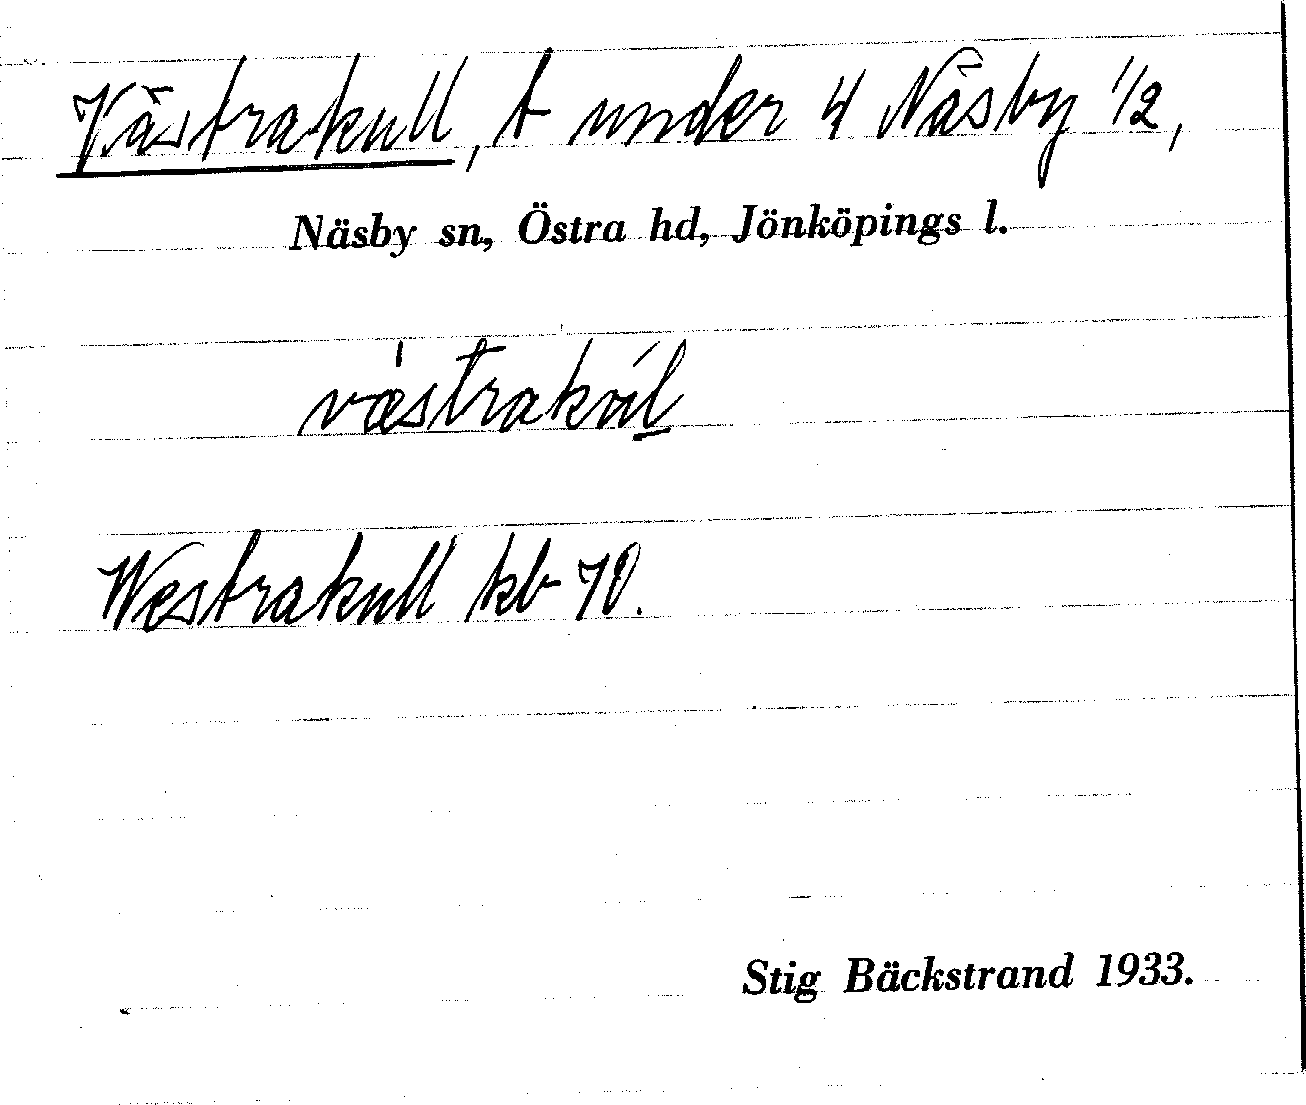 Västrakull, t under 4 Näsby 1/2,
Näsby sn, Östra hd, Jönköpings l.
Westrakull kb 70.
Stig Bäckstrand 1933.